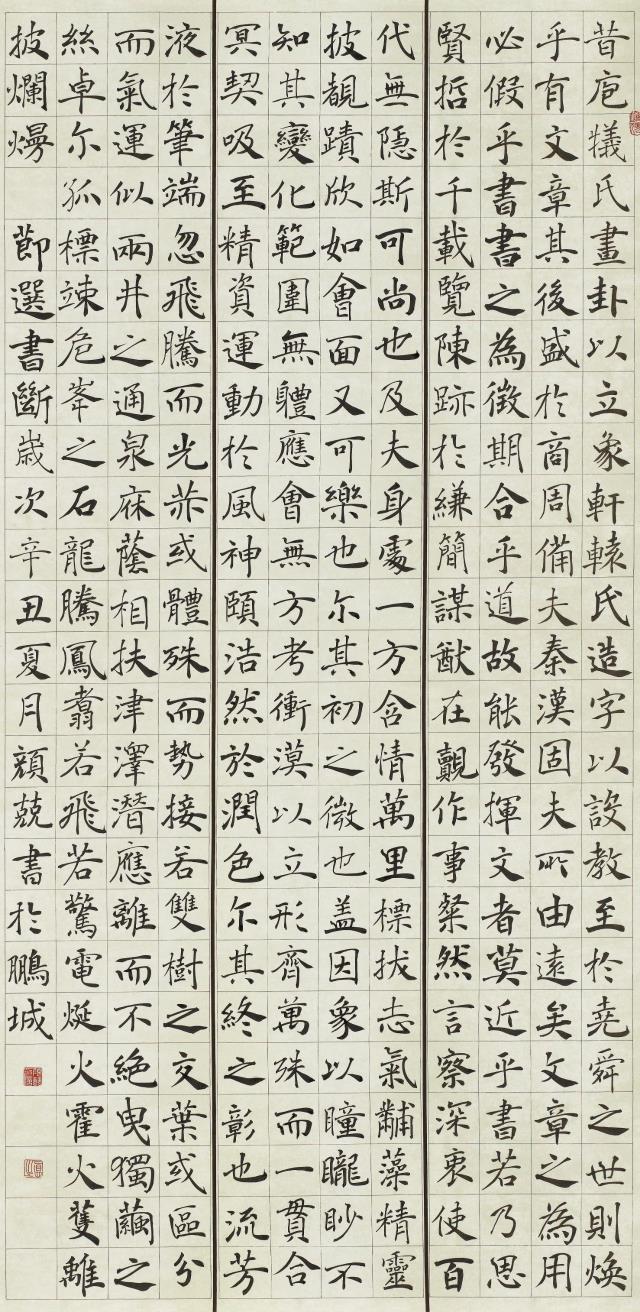 昔庖犧氏畫卦以立象軒轅氏造字以設教至於堯舜之世則煥
乎有文章其後盛於商周備夫秦漢固夫所由遠矣文章之為用
必假乎書書之為徵期合乎道故能發揮文者莫近乎書若乃思
賢哲於千載覽陳跡於縑簡謀猷在覿作事粲然言察深衷使百
代無隱斯可尚也及夫身處一方含情萬里標拔志氣黼藻精靈
披覩蹟欣如會面又可樂也尔其初之微也盖因象以瞳矓眇不
知其變化範圍無軆應會無方考衝漠以立形齊萬殊而一貫合
冥契吸至精資運動於風神頤浩然於潤色尔其終之彰也流芳
液於筆端忽飛騰而光赤或體殊而勢接若雙樹之交葉或區分
而氣運似兩井之通泉庥蔭相扶津澤潛應離而不絕曳獨繭之
絲卓尔孤標竦危峯之石龍騰鳳翥若飛若驚電烻火霍火隻離
披爛熳 節選書斷歲次辛丑夏月顏兢書於鵬城